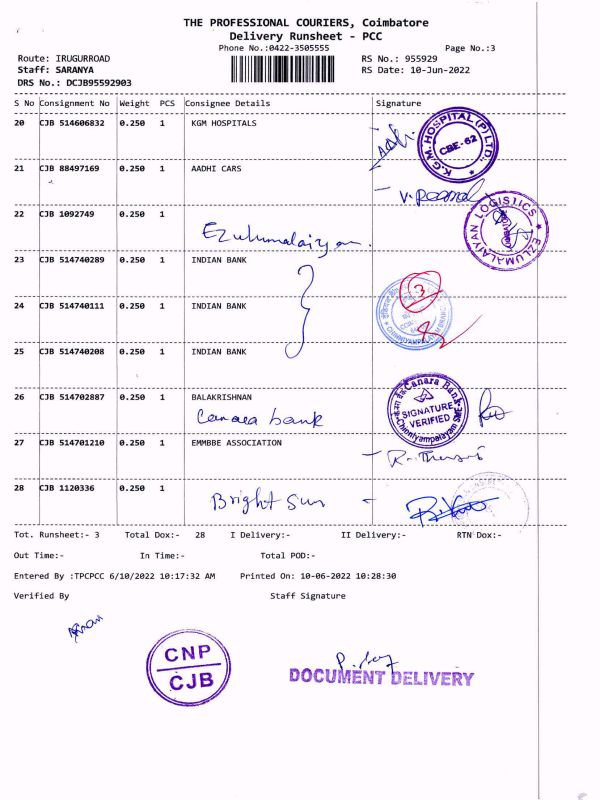 THE PROFESSIONAL COURIERS, Coimbatore
Delivery Runsheet - PCC
Phone No.:0422-3505555 Page No.:3
Route: IRUGURROAD RS No.: 955929
Staff: SARANYA RS Date: 10-Jun-2022
DRS No.: DCJB95592903
S No Consignment No Weight PCS Consignee Details Signature
20 CJB 514606832 0.250 1 KGM HOSPITALS
K.G.M. HOSPITAL (P) LTD.,
CBE-62
21 CJB 88497169 0.250 1 AADHI CARS
22 CJB 1092749 0.250 1
Ezulumalaiyan.
EZLUMALAIYAN LOGISTICS
23 CJB 514740289 0.250 1 INDIAN BANK
3
24 CJB 514740111 0.250 1 INDIAN BANK
25 CJB 514740208 0.250 1 INDIAN BANK
26 CJB 514702887 0.250 1 BALAKRISHNAN
Canara bank
Canara Bank
SIGNATURE
VERIFIED
Chinniyampalayam
27 CJB 514701210 0.250 1 EMMBBE ASSOCIATION
28 CJB 1120336 0.250 1
Bright Sun
Tot. Runsheet:- 3 Total Dox:- 28 I Delivery:- II Delivery:- RTN Dox:-
Out Time:- In Time:- Total POD:-
Entered By :TPCPCC 6/10/2022 10:17:32 AM Printed On: 10-06-2022 10:28:30
Verified By Staff Signature
CNP
CJB
DOCUMENT DELIVERY